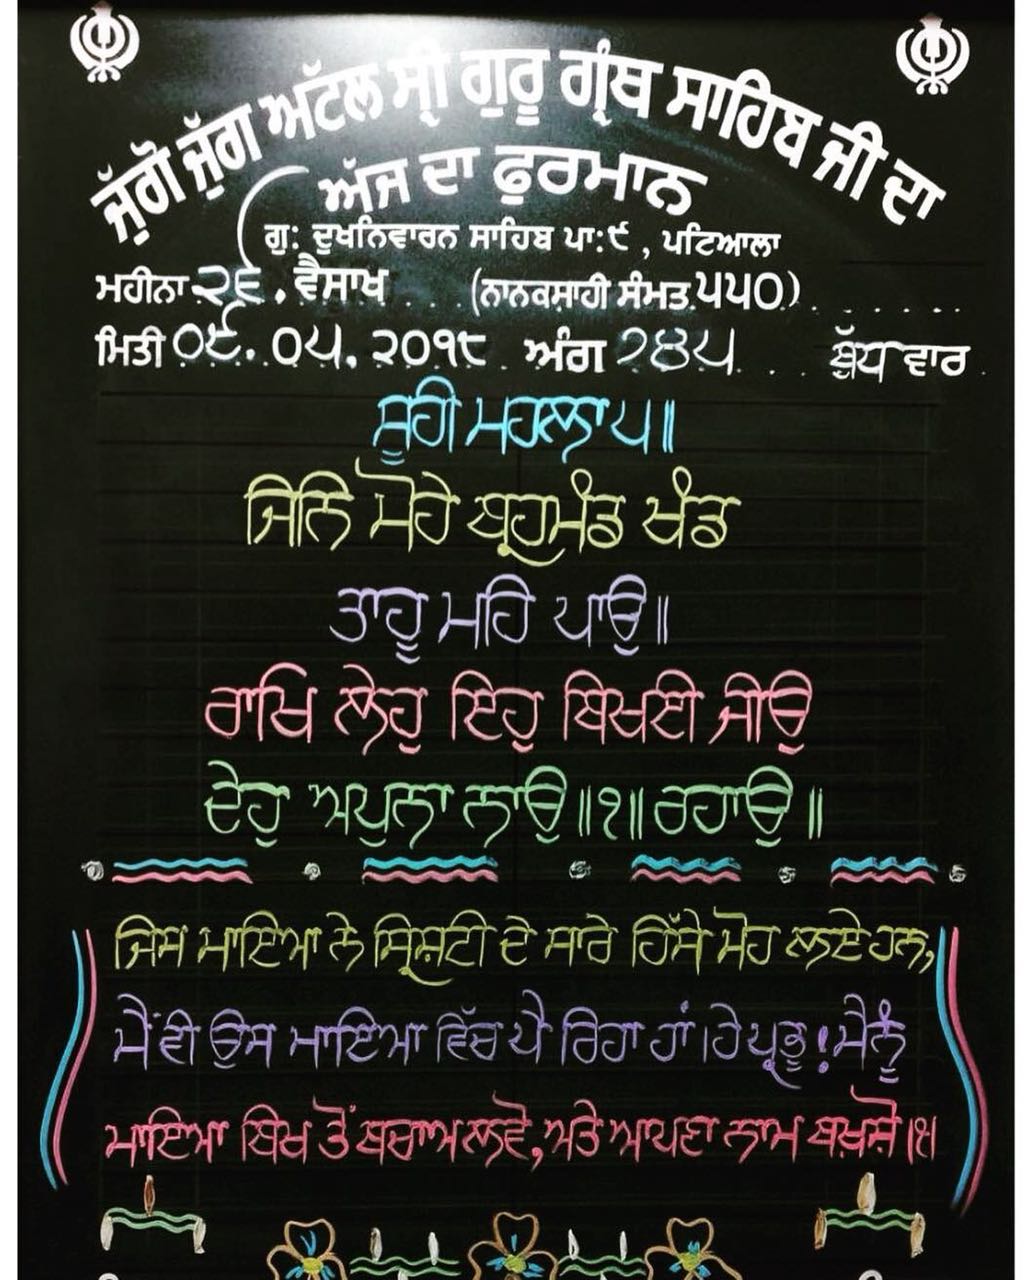 ਜੁੱਗੋ ਜੁੱਗ ਅਟੱਲ ਸ੍ਰੀ ਗੁਰੂ ਗ੍ਰੰਥ ਸਾਹਿਬ ਜੀ ਦਾ
ਅੱਜ ਦਾ ਫੁਰਮਾਨ
ਗੁ: ਦੁਖਨਿਵਾਰਨ ਸਾਹਿਬ ਪਾ:੯, ਪਟਿਆਲਾ
ਮਹੀਨਾ ੨੬. ਵੈਸਾਖ (ਨਾਨਕਸ਼ਾਹੀ ਸੰਮਤ ੫੫੦)
ਮਿਤੀ ੦੯. ੦੫. ੨੦੧੮ ਅੰਗ ੭੪੫ ਬੁੱਧ ਵਾਰ
ਸੂਹੀ ਮਹਲਾ ੫॥
ਜਿਨਿ ਮੋਹੇ ਬ੍ਰਹਮੰਡ ਖੰਡ
ਤਾਹੂ ਮਹਿ ਪਾਉ॥
ਰਾਖਿ ਲੇਹੁ ਇਹੁ ਬਿਖਈ ਜੀਉ
ਦੇਹੁ ਅਪੁਨਾ ਨਾਉ॥੧॥ ਰਹਾਉ॥
ਜਿਸ ਮਾਇਆ ਨੇ ਸ੍ਰਿਸ਼ਟੀ ਦੇ ਸਾਰੇ ਹਿੱਸੇ ਮੋਹ ਲਏ ਹਨ,
ਮੈਂ ਵੀ ਉਸ ਮਾਇਆ ਵਿੱਚ ਪੈ ਰਿਹਾ ਹਾਂ। ਹੇ ਪ੍ਰਭੂ! ਮੈਨੂੰ
ਮਾਇਆ ਬਿਖ ਤੋਂ ਬਚਾਅ ਲਵੋ, ਅਤੇ ਆਪਣਾ ਨਾਮ ਬਖ਼ਸ਼ੋ।੧।